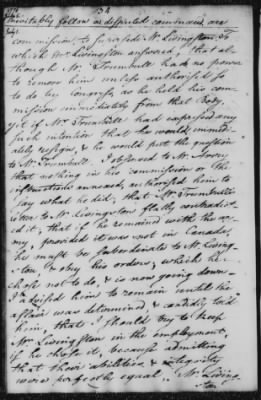 1776
Sept.
34
inevitably follow a disputed command, are
commission, to supersede Mr Livingston, To
which Mr Livingston answered, that al-
though Mr. Trumbull had no power
to remove him unless authorised so
to do by Congress, as he held his com-
mission immediately from that Body,
yet if Mr. Trumbull had expressed any
such intention that he would immedi-
ately resign, & he would put the question
to Mr Trumbull. I observed to Mr Avery
that nothing in his commission or the
instructions annexed, authorized him to
say what he did, that Mr Trumbull's
letter to Mr Livingston flatly contradict-
ed it, that if he remained with the ar-
my, provided it was not in Canada,
he must be subordinate to Mr Living-
ston, & obey his orders, which he
chose not to do, & is now going down—
I desired him to remain until the
affair was determined & candidly told
him, that I should try to keep
Mr Livingston in the employment,
if he chose it, because admitting
that their abilities & integrity
were perfectly equal, Mr Living-
ston